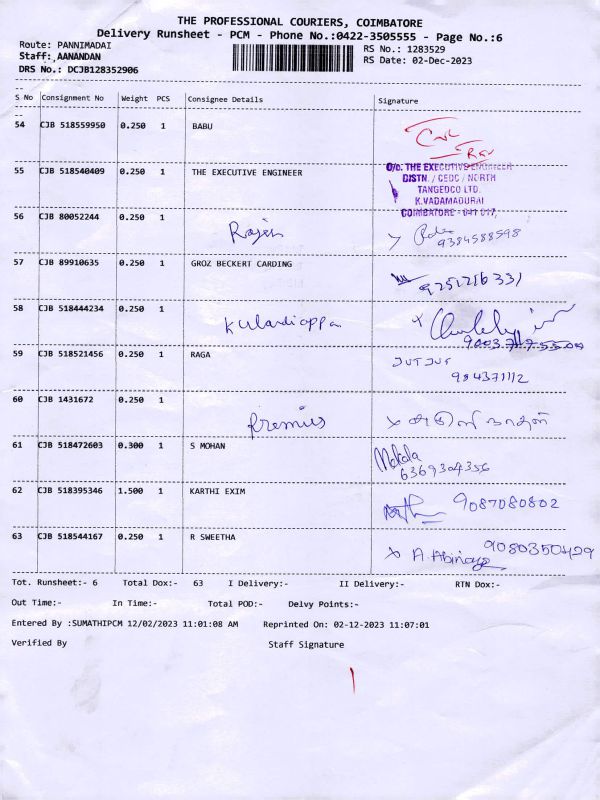 THE PROFESSIONAL COURIERS, COIMBATORE
Delivery Runsheet - PCM - Phone No.:0422-3505555 - Page No.:6
Route: PANNIMADAI
RS No.: 1283529
Staff:,AANANDAN
RS Date: 02-Dec-2023
DRS No.: DCJB128352906
S No Consignment No Weight PCS Consignee Details Signature
54 CJB 518559950 0.250 1 BABU
55 CJB 518540409 0.250 1 THE EXECUTIVE ENGINEER
O/o. THE EXECUTIVE ENGINEER
DISTN. / CEDC / NORTH
TANGEDCO LTD.
K.VADAMADURAI
COIMBATORE - 641 017.
56 CJB 80052244 0.250 1
Rajesh
9384588598
57 CJB 89910635 0.250 1 GROZ BECKERT CARDING
9251216331
58 CJB 518444234 0.250 1
Kulandiappa
59 CJB 518521456 0.250 1 RAGA
984371112
60 CJB 1431672 0.250 1
Premius
61 CJB 518472603 0.300 1 S MOHAN
Mekala
6369304356
62 CJB 518395346 1.500 1 KARTHI EXIM
9087080802
63 CJB 518544167 0.250 1 R SWEETHA
9080350429
A. Abinaya
Tot. Runsheet:- 6 Total Dox:- 63 I Delivery:- II Delivery:- RTN Dox:-
Out Time:- In Time:- Total POD:- Delvy Points:-
Entered By :SUMATHIPCM 12/02/2023 11:01:08 AM Reprinted On: 02-12-2023 11:07:01
Verified By Staff Signature